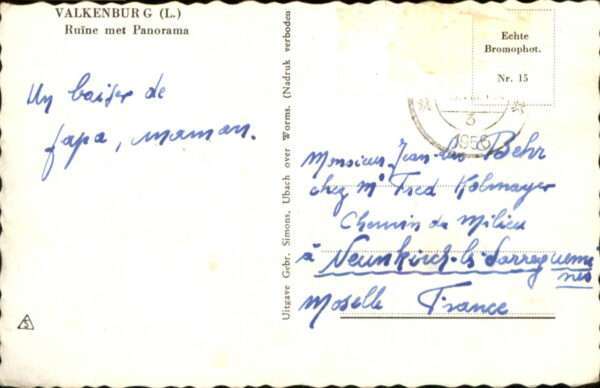 VALKENBURG (L.)
Ruïne met Panorama
Un baiser de
papa, maman.
Uitgave Gebr. Simons, Ubach over Worms. (Nadruk verboden
Echte
Bromophot.
Nr. 15
3
1958
Monsieur Jean-Luc Behr
chez Mr Fred Kolmayer
Chemin du Milieu
à Neunkirch-ls-Sarreguemi
nes
Moselle France
S